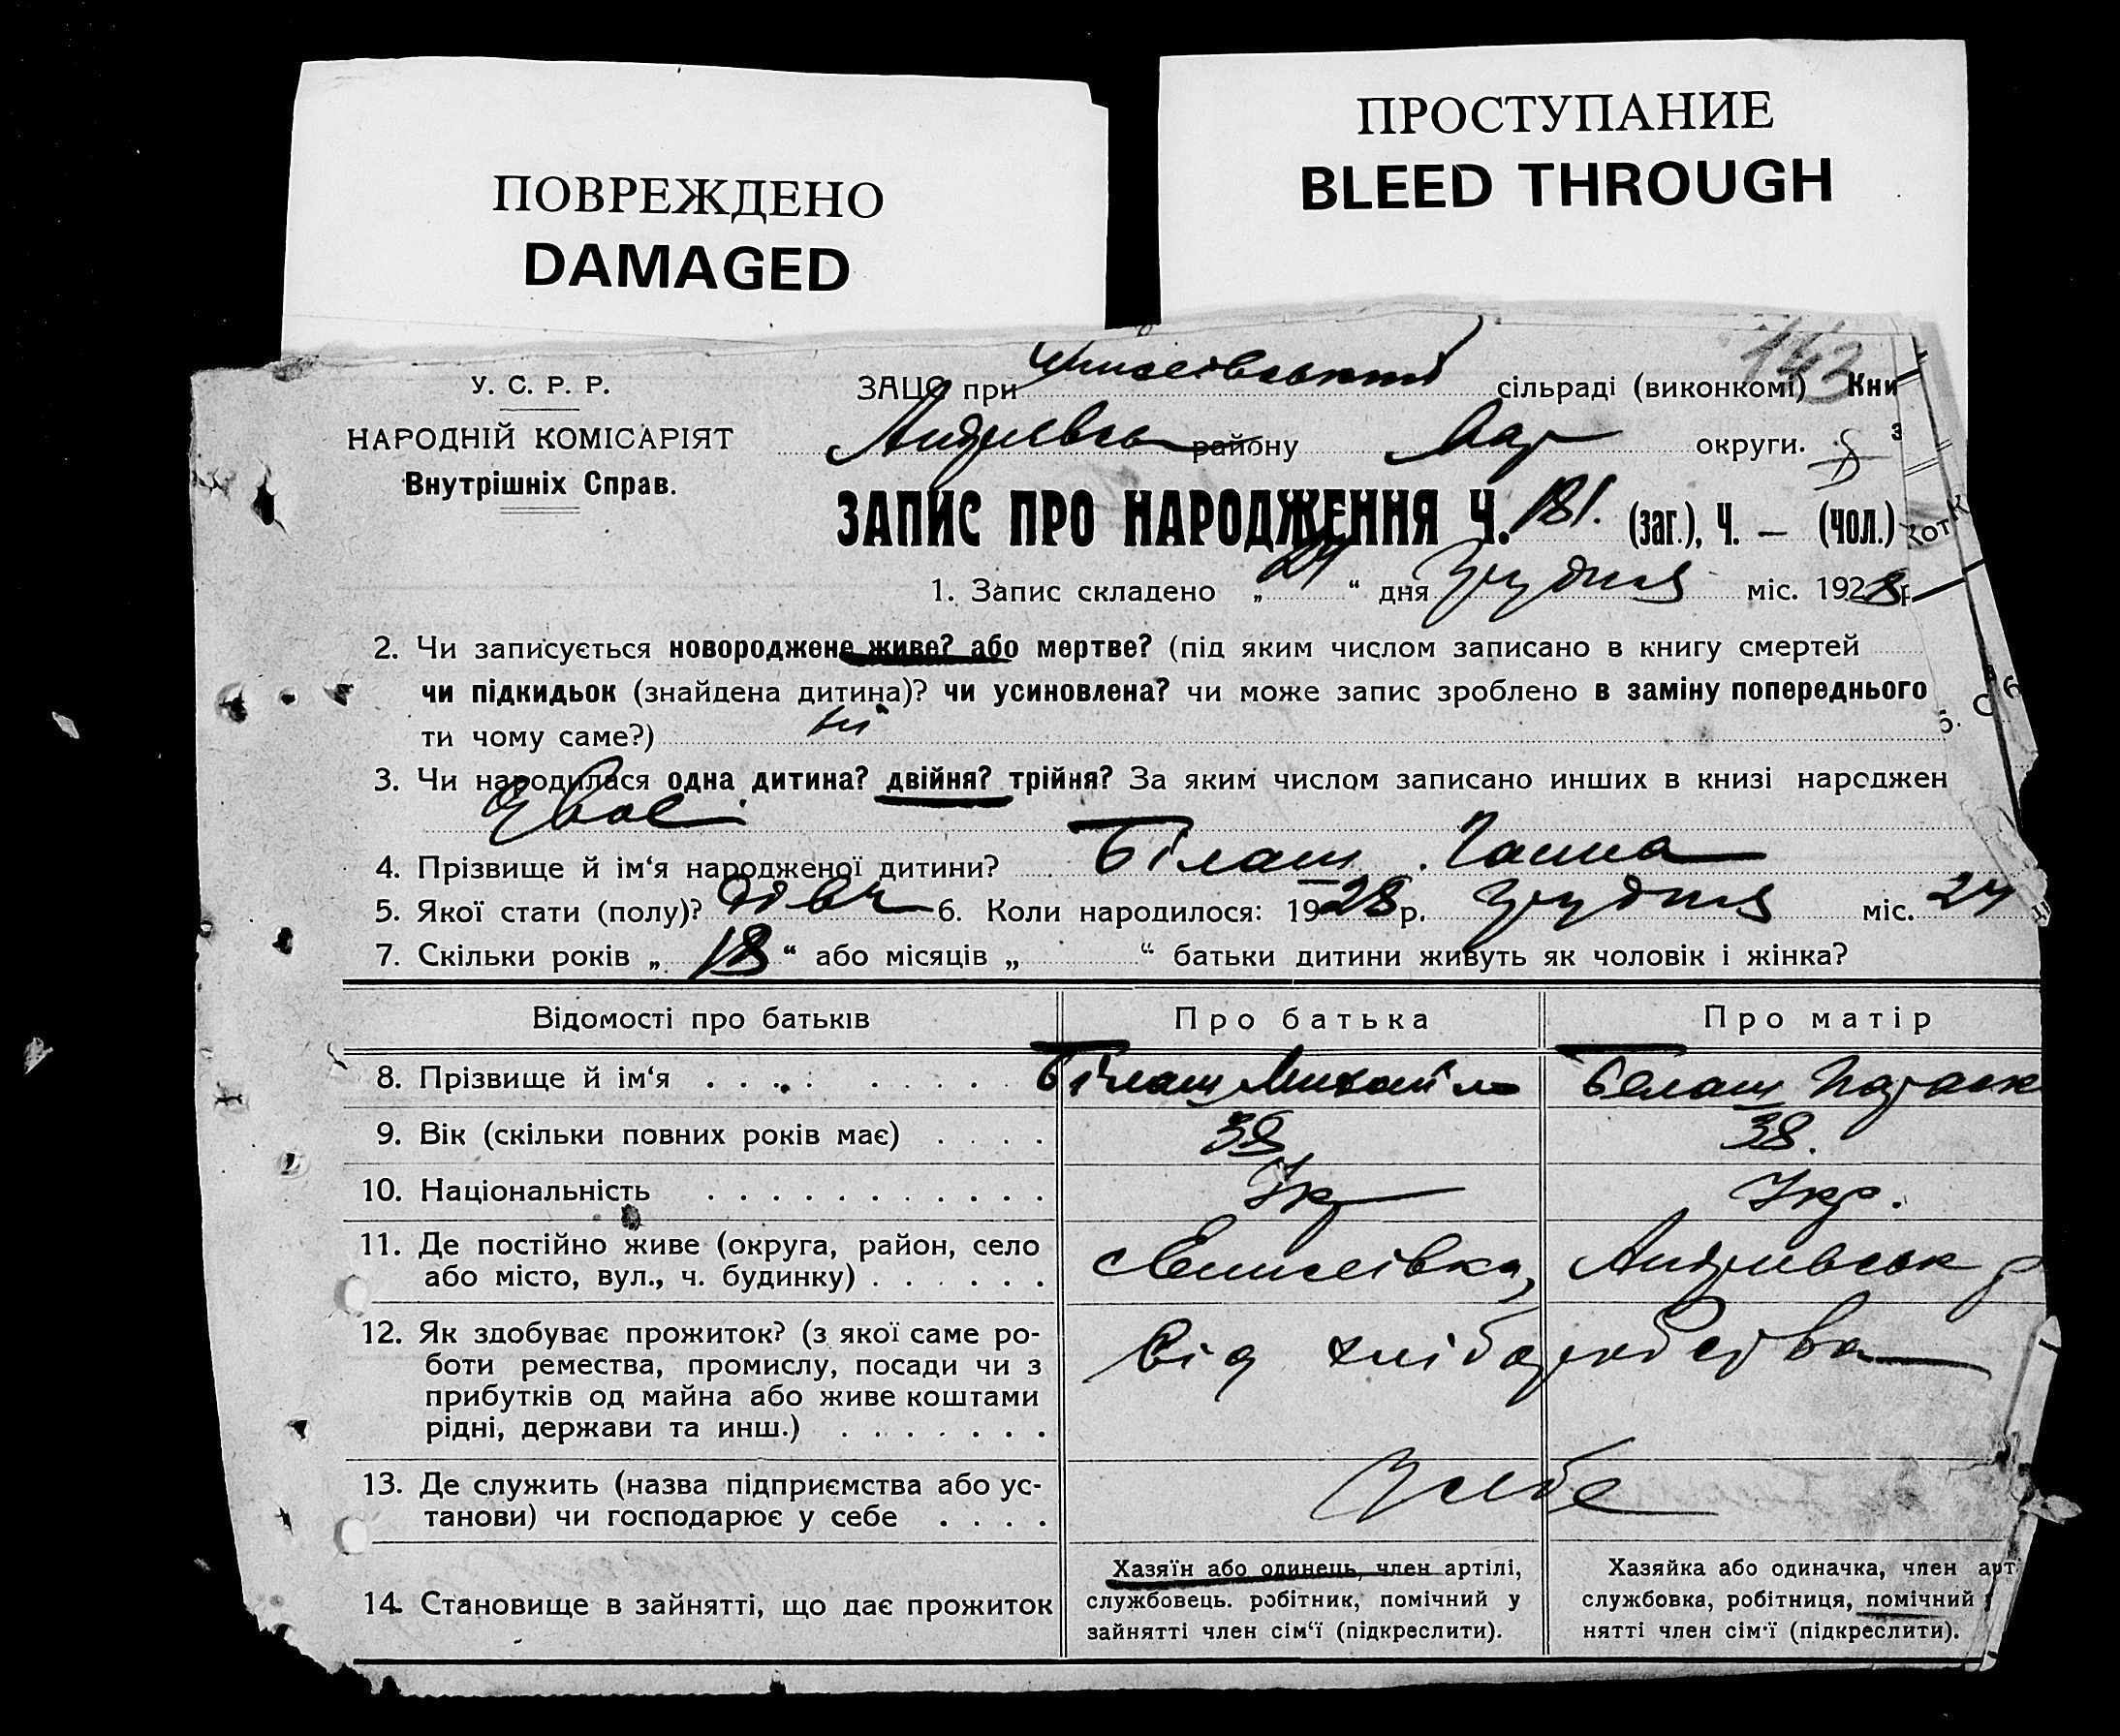 ПОВРЕЖДЕНО
DAMAGED
ПРОСТУПАНИЕ
BLEED THROUGH
143
У. С. Р. Р.
НАРОДНІЙ КОМІСАРІЯТ
Внутрішніх Справ.
ЗАЦС при сільраді (виконкомі) Кни
району округи.
ЗАПИС ПРО НАРОДЖЕННЯ Ч. 181. (заг.), Ч. — (чол.)
1. Запис складено „ 24 “ дня Грудня міс. 1928 р
2. Чи записується новороджене живе? або мертве? (під яким числом записано в книгу смертей
чи підкидьок (знайдена дитина)? чи усиновлена? чи може запис зроблено в заміну попереднього
ти чому саме?) ні
3. Чи народилася одна дитина? двійня? трійня? За яким числом записано инших в книзі народжен
двоє
4. Прізвище й ім‘я народженої дитини? Білаш Ганна
5. Якої стати (полу)? дівч 6. Коли народилося: 1928 р. Грудня міс. 24
7. Скільки років „ 18 “ або місяців „ “ батьки дитини живуть як чоловік і жінка?
Відомості про батьків Про батька Про матір
8. Прізвище й ім‘я . . . . Білаш Михайло Білаш Параск
9. Вік (скільки повних років має) . . . . 38 38.
10. Національність . . . . Укр Укр.
11. Де постійно живе (округа, район, село
або місто, вул., ч. будинку) . . . . . . Андріївськ р
12. Як здобуває прожиток? (з якої саме ро-
боти ремества, промислу, посади чи з
прибутків од майна або живе коштами
рідні, держави та инш.) . . . . . . .
від хліборобства
13. Де служить (назва підприємства або ус-
танови) чи господарює у себе . . . .
У себе
14. Становище в зайнятті, що дає прожиток
Хазяїн або одинець, член артілі,
службовець. робітник, помічний у
зайнятті член сім‘ї (підкреслити).
Хазяйка або одиначка, член арт
службовка, робітниця, помічний
нятті член сім‘ї (підкреслити).